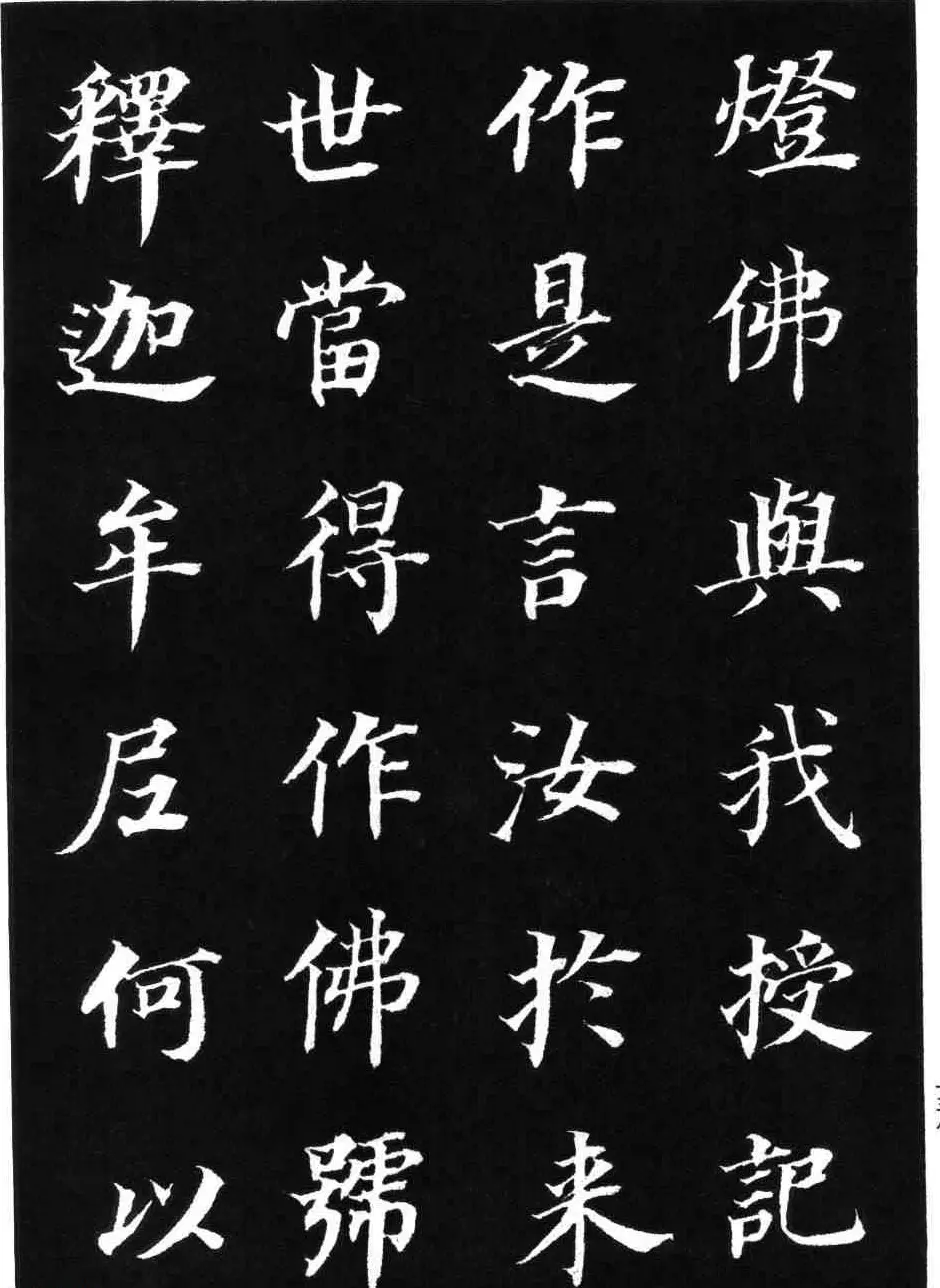 燈佛與我授記
作是言汝於来
世當得作佛號
釋迦牟尼何以